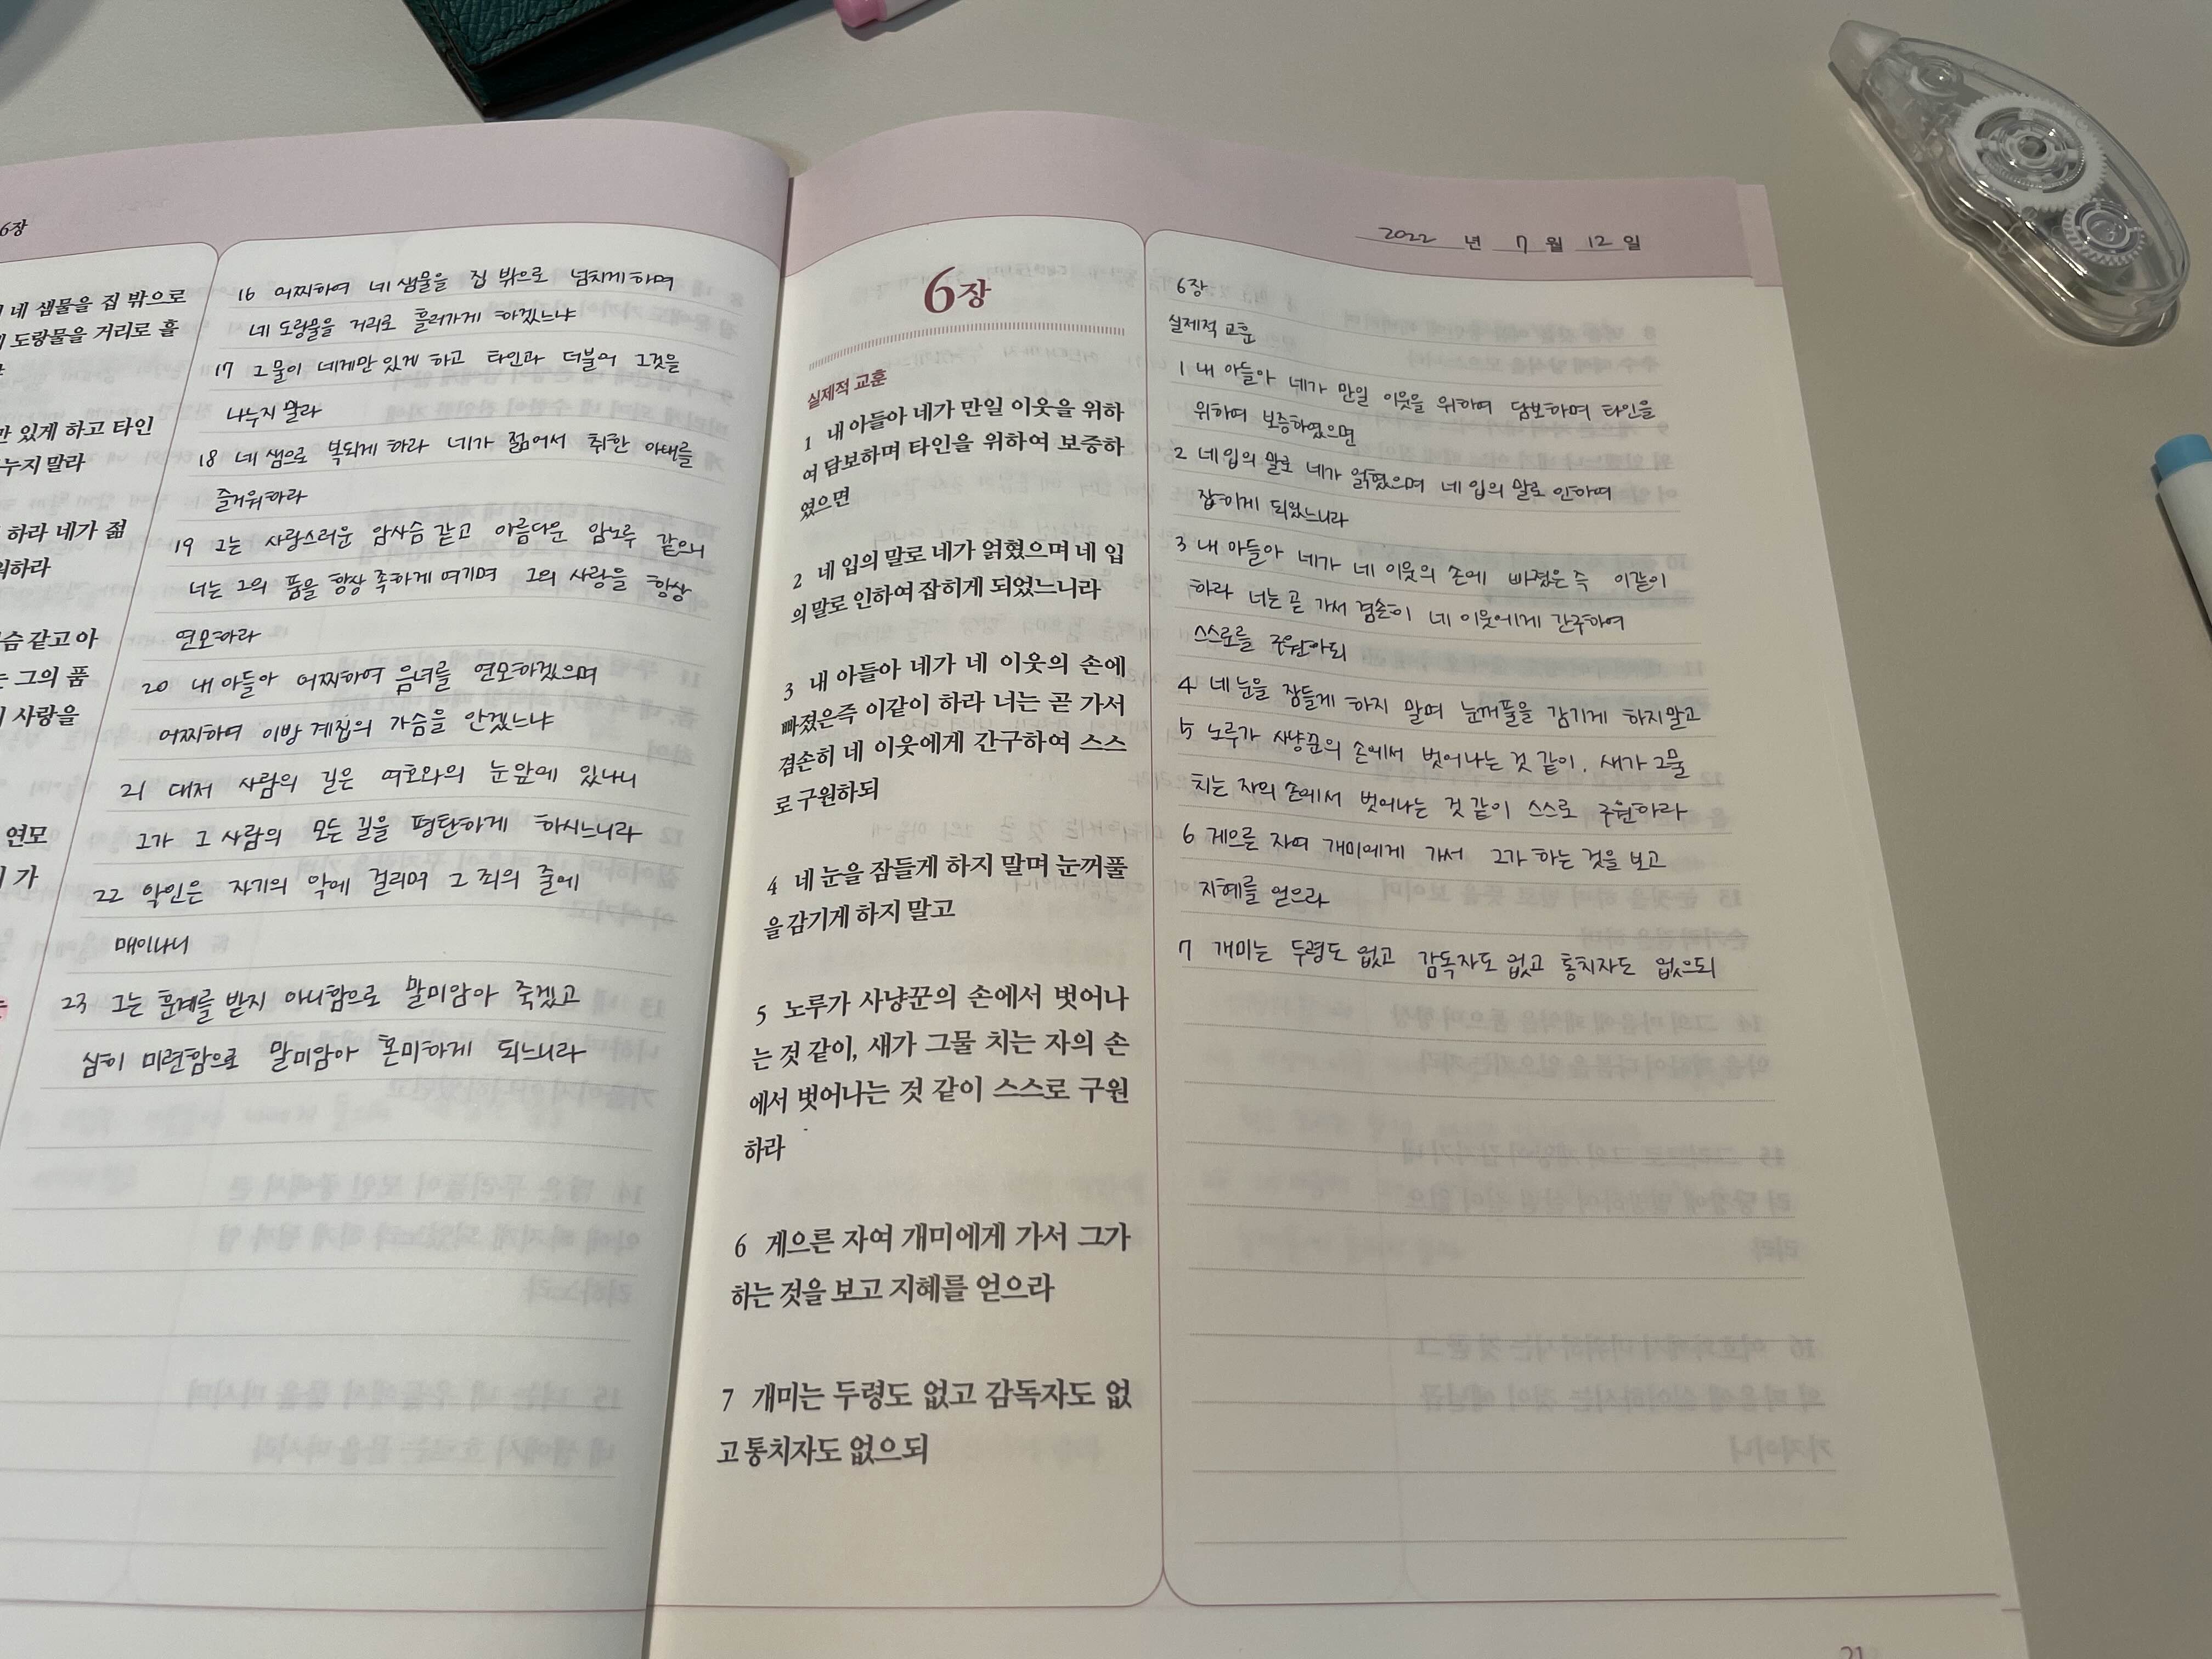 6장
네 샘물을 집 밖으로
도랑물을 거리로 흘
만 있게 하고 타인
누지 말라
하라 네가 젊
워하라
슴 같고 아
는 그의 품
사랑을
연모
가
16 어찌하여 네 샘물을 집 밖으로 넘치게 하며
네 도랑물을 거리로 흘러가게 하겠느냐
17 그 물이 네게만 있게 하고 타인과 더불어 그것을
나누지 말라
18 네 샘으로 복되게 하라 네가 젊어서 취한 아내를
즐거워하라
19 그는 사랑스러운 암사슴 같고 아름다운 암노루 같으니
너는 그의 품을 항상 족하게 여기며 그의 사랑을 항상
연모하라
20 내 아들아 어찌하여 음녀를 연모하겠으며
어찌하여 이방 계집의 가슴을 안겠느냐
21 대저 사람의 길은 여호와의 눈 앞에 있나니
그가 그 사람의 모든 길을 평탄하게 하시느니라
22 악인은 자기의 악에 걸리며 그 죄의 줄에
매이나니
23 그는 훈계를 받지 아니함으로 말미암아 죽겠고
심히 미련함으로 말미암아 혼미하게 되느니라
6장
실제적 교훈
1 내 아들아 네가 만일 이웃을 위하
여 담보하며 타인을 위하여 보증하
였으면
2 네 입의 말로 네가 얽혔으며 네 입
의 말로 인하여 잡히게 되었느니라
3 내 아들아 네가 네 이웃의 손에
빠졌은즉 이같이 하라 너는 곧 가서
겸손히 네 이웃에게 간구하여 스스
로 구원하되
4 네 눈을 잠들게 하지 말며 눈꺼풀
을 감기게 하지 말고
5 노루가 사냥꾼의 손에서 벗어나
는 것 같이, 새가 그물 치는 자의 손
에서 벗어나는 것 같이 스스로 구원
하라
6 게으른 자여 개미에게 가서 그가
하는 것을 보고 지혜를 얻으라
7 개미는 두령도 없고 감독자도 없
고 통치자도 없으되
2022 년 7 월 12 일
6장
실제적 교훈
1 내 아들아 네가 만일 이웃을 위하여 담보하며 타인을
위하여 보증하였으면
2 네 입의 말로 네가 얽혔으며 네 입의 말로 인하여
잡히게 되었느니라
3 내 아들아 네가 네 이웃의 손에 빠졌은즉 이같이
하라 너는 곧 가서 겸손히 네 이웃에게 간구하여
스스로를 구원하되
4 네 눈을 잠들게 하지 말며 눈꺼풀을 감기게 하지 말고
5 노루가 사냥꾼의 손에서 벗어나는 것 같이, 새가 그물
치는 자의 손에서 벗어나는 것 같이 스스로 구원하라
6 게으른 자여 개미에게 가서 그가 하는 것을 보고
지혜를 얻으라
7 개미는 두령도 없고 감독자도 없고 통치자도 없으되
21